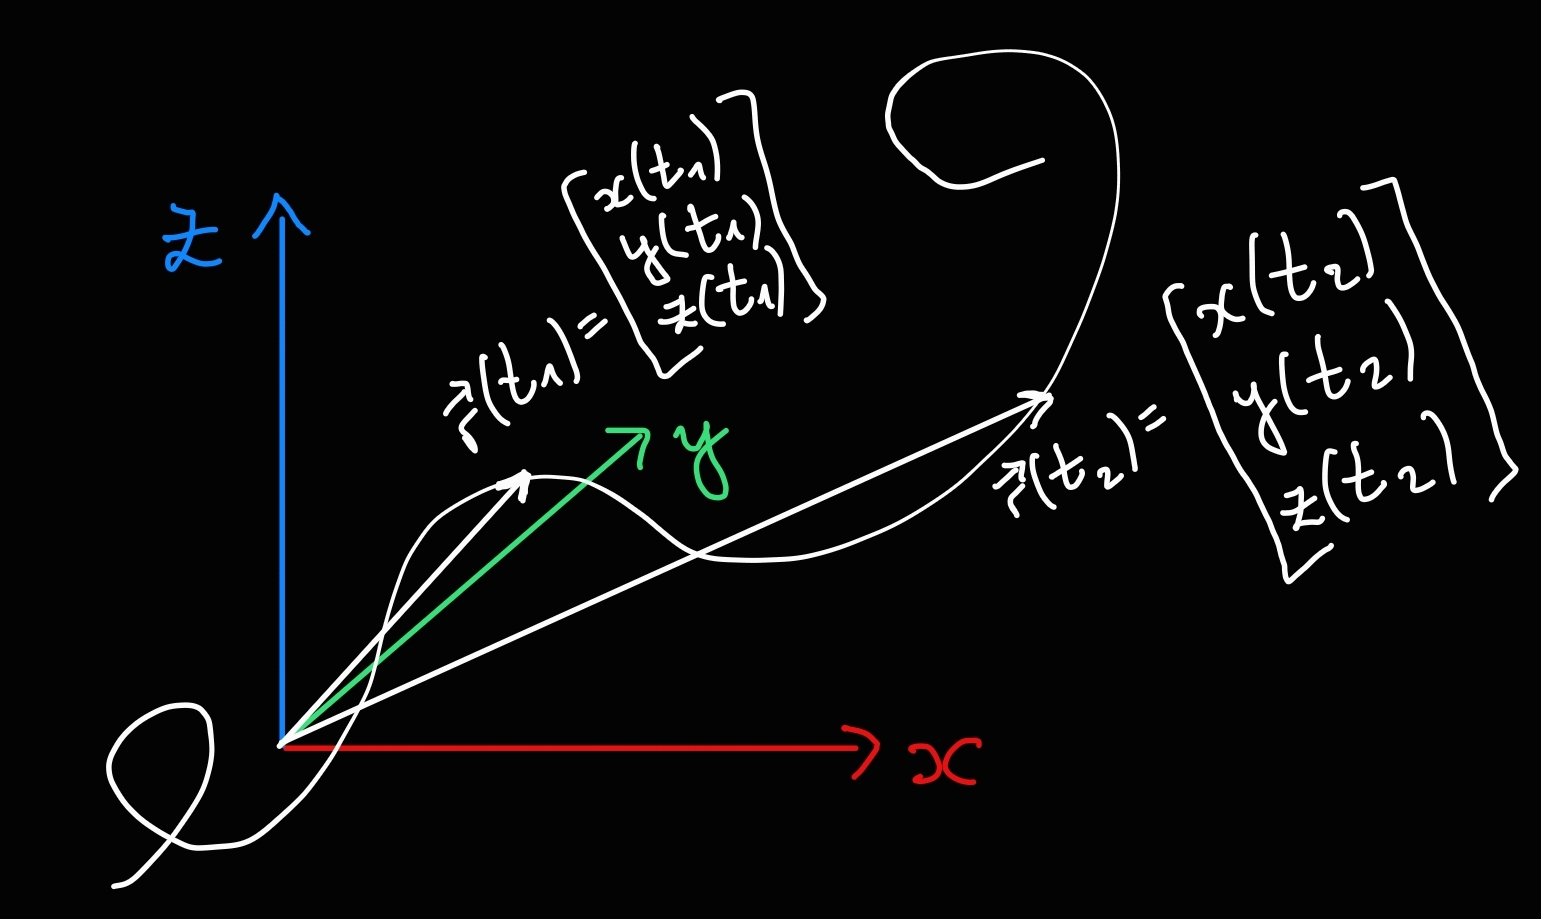 z
r⃗(t1) = [x(t1)
y(t1)
z(t1)]
y
r⃗(t2) = [x(t2)
y(t2)
z(t2)]
x